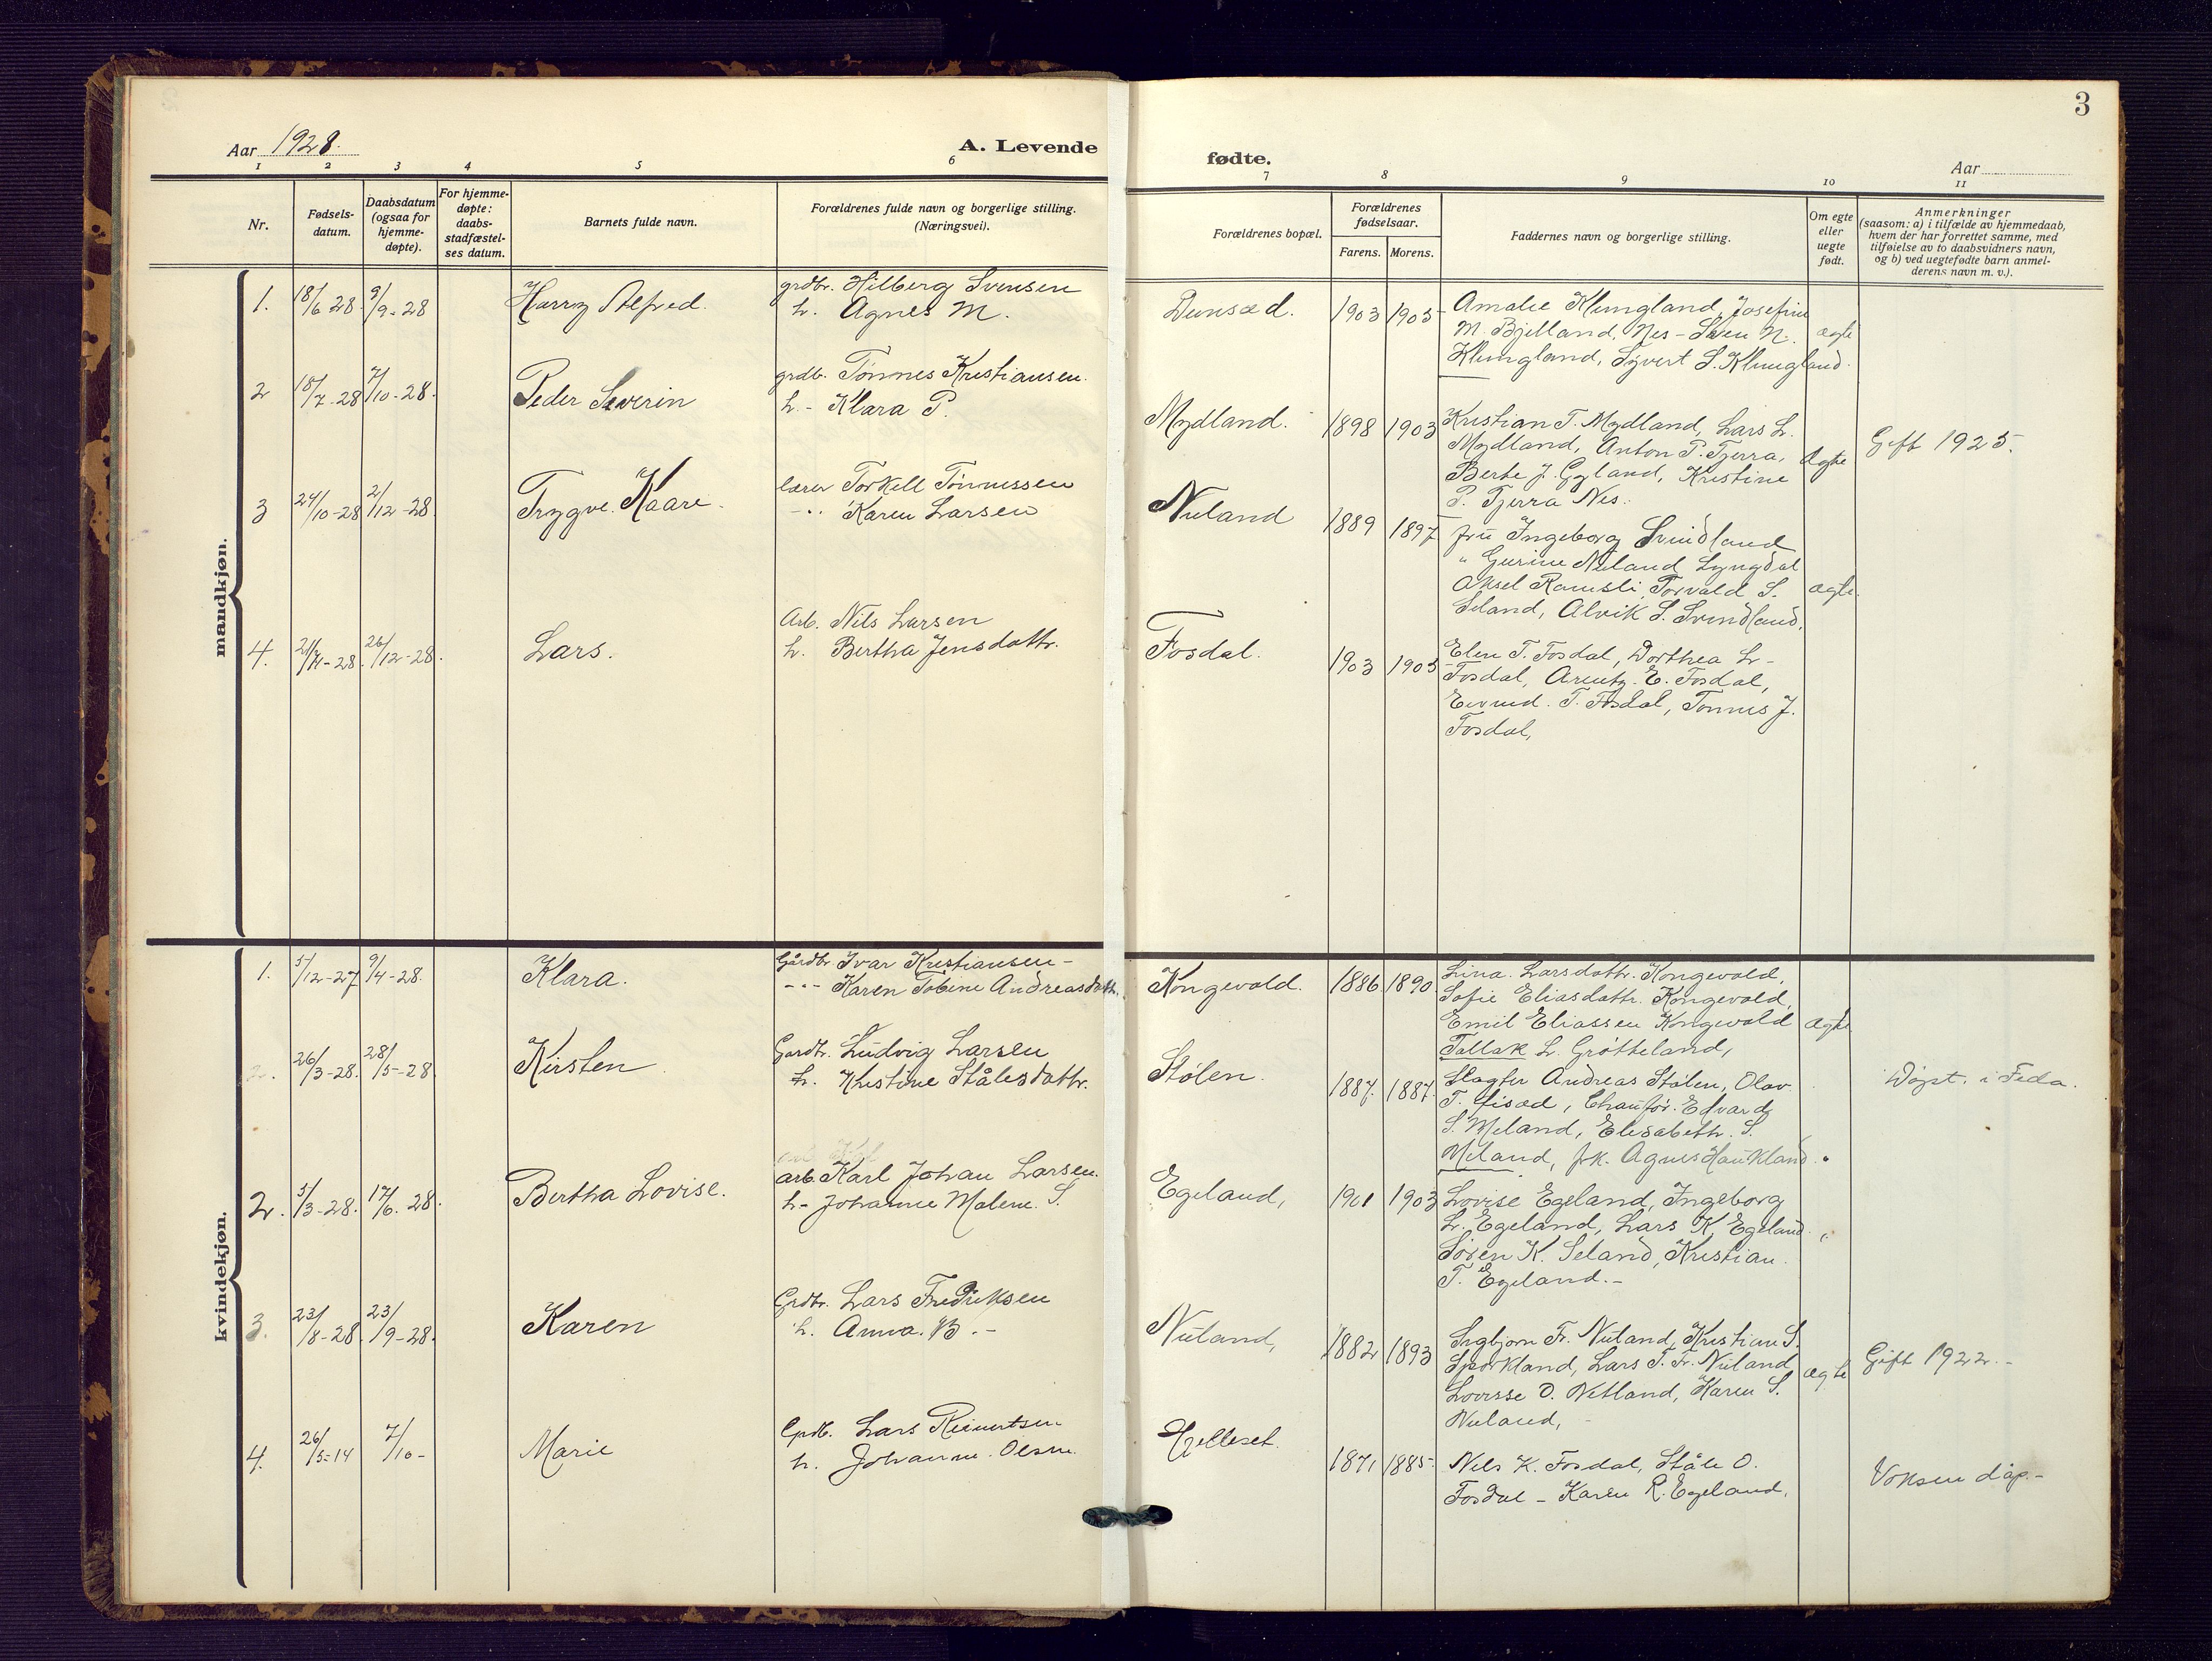 3
Aar 1928.
A. Levende
1 2 3 4 5 6
Nr.
Fødsels-
datum.
Daabsdatum
(ogsaa for
hjemme-
døpte).
For hjemme-
døpte:
daabs-
stadfæstel-
ses datum.
Barnets fulde navn.
Forældrenes fulde navn og borgerlige stilling.
(Næringsvei).
mandkjøn.
1. 18/6 28. 9/9-28 Harry Alfred. grdbr. Hilberg Svensen
h. Agnes M.
2 18/7-28 7/10-28. Peder Severin grdb. Tønnes Kristiansen.
h.- Klara P.
3 24/10-28 2/12-28 Trygve Kaare. lærer Torkell Tønnessen
-"- Karen Larsen
4. 28. 26/12-28. Lars. Arb. Nils Larsen
h. Bertha Jensdattr.
kvindekjøn.
1. 5/12-27 9/4-28. Klara. Gårdbr. Ivar Kristiansen-
-"- Karen Tobine Andreasdattr.
2. 26/3-28. 28/5-28 Kirsten Gardbr. Ludvig Larsen
h. Kristine Stålesdattr.
2. 5/3-28. 17/6. 28. Bertha Lovise. arb. Karl Johan Larsen.
h- Johanne Malene. S
3. 23/8-28. 23/9-28. Karen Grdbr. Lars Fredriksen
h. Anna. B.-
4. 26/5-14 7/10- Marie Grdb. Lars Reinertsen
h. Johanne Olsen.
fødte.
Aar
7 8 9 10 11
Forældrenes bopæl.
Forældrenes
fødselsaar.
Farens. Morens.
Faddernes navn og borgerlige stilling.
Om egte
eller
uegte
født.
Anmerkninger
(saasom: a) i tilfælde av hjemmedaab,
hvem der har forrettet samme, med
tilføielse av to daabsvidners navn,
og b) ved uegtefødte barn anmel-
derens navn m. v.).
Dunsæd. 1903 1905 Amalie Klungland, Josefine
M. Bjelland, Nes - Sven N. ægte
Klungland, Syvert S. Klungland.
Mydland. 1898 1903 Kristian T. Mydland, Lars L.
Mydland, Anton P. Tjerra, ægte Gift 1925.
Berte J. Gyland, Kristine
P. Tjerra Nes.
Nuland 1889 1897 fru Ingeborg Svindland
" Gurine Nuland Lyngdal
Aksel Ramsli, Torvald S. ægte.
Seland, Alvik S. Svindland.
Fosdal. 1903 1905 Elen T. Fosdal, Dorthea L-
Fosdal, Arentz. E. Fosdal,
Eivind. T. Fosdal, Tønnes J.
Fosdal,
Kongevold. 1886 1890 Lina. Larsdattr. Kongevold,
Sofie Eliasdattr. Kongevold,
Emil Eliassen Kongevold ægte
Tallak L. Grøtteland,
Stølen. 1887. 1887. Slagter Andreas Stølen, Olav Døpt. i Feda.
T. Lisæd, Chaufør. Edvard
S. Meland, Elisabeth. S.
Meland, frk. Agnes Haukland. "
Egeland, 1901 1903 Lovise Egeland, Ingeborg
L. Egeland, Lars K. Egeland. "
Søren K. Seland, Kristian.
T. Egeland.-
Nuland, 1882 1893 Sigbjørn Fr. Nuland, Kristian S.
Sporkland, Lars T. Fr. Nuland ægte Gift 1922.-
Lovisse O. Netland, Karen S.
Nuland,-
Helleset. 1871 1885. Nels K. Fosdal, Ståle O. Voksen dåp.-
Fosdal - Karen R. Egeland.